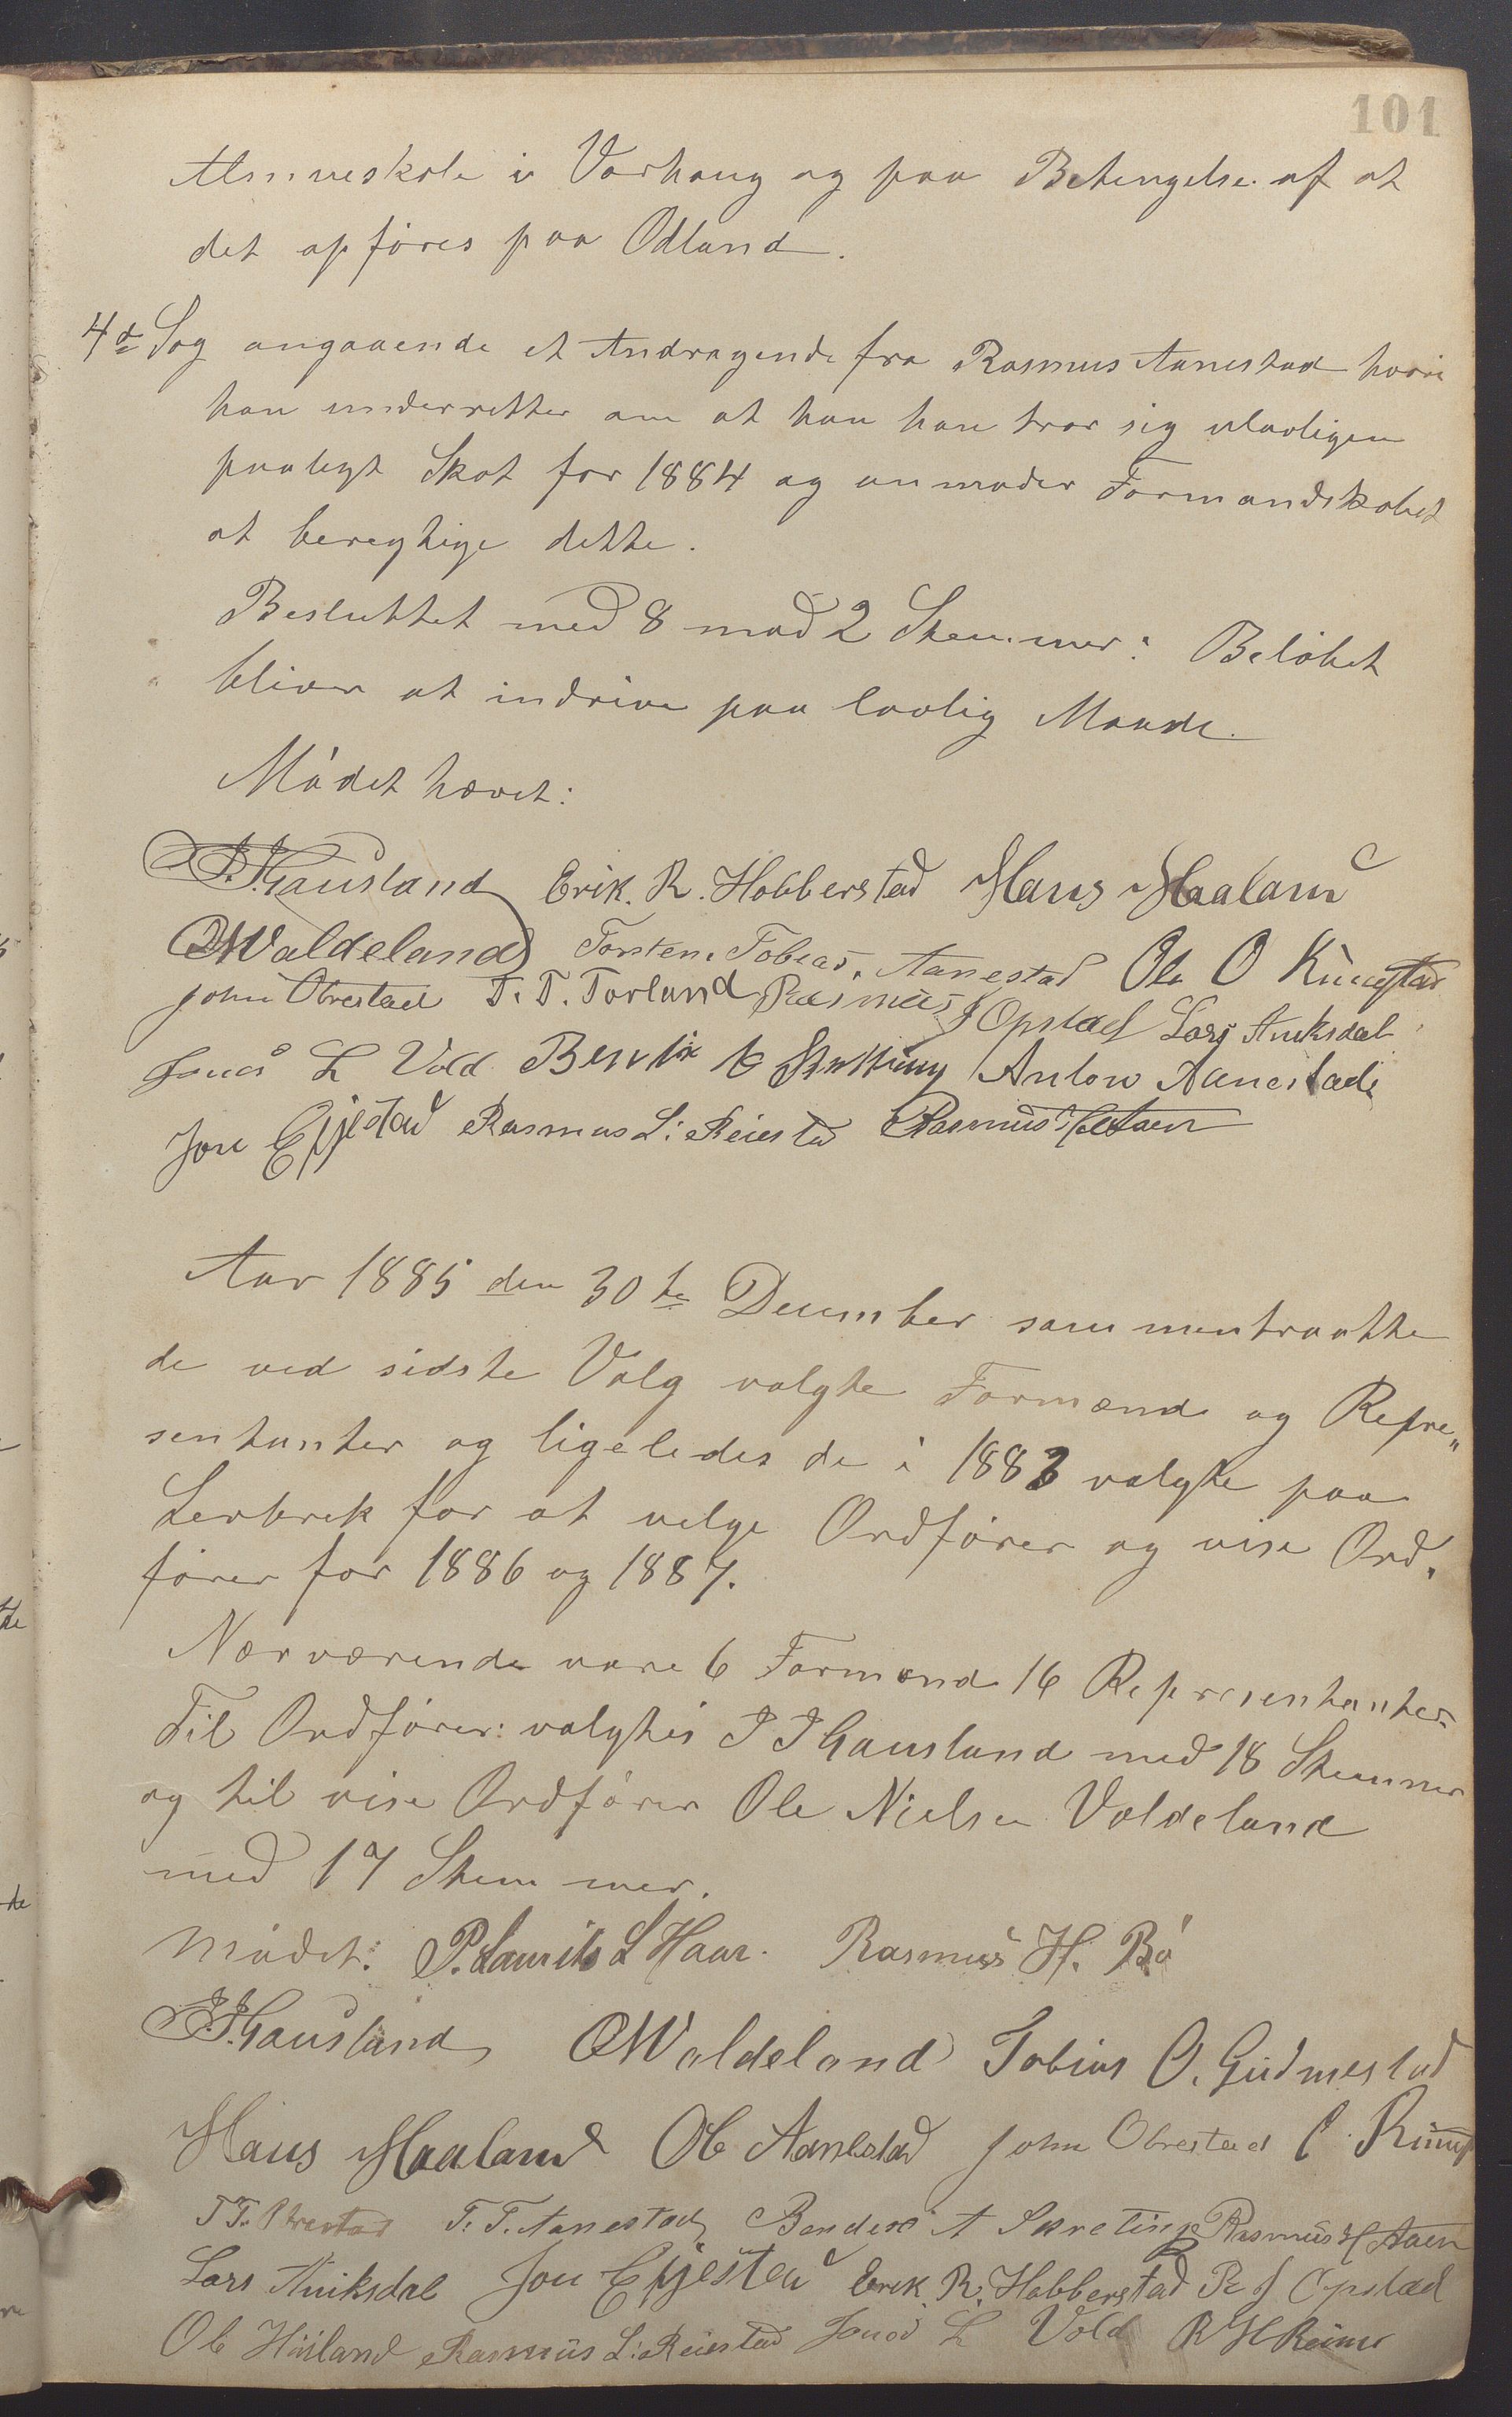 101
Almueskole i Varhaug og paa Betengelse af at
det opføres paa Odland.
4de Sag angaaende et Andragende fra Rasmus Aanestad hvori
han underretter om at han han tror sig ulovligen
paalegt Skat for 1884 og anmoder Formandskabet
at beregtige dette.
Besluttet med 8 mod 2 Stemmer: Beløbet
bliver at indrive paa lovlig Maade.
Mødet hævet:
J. J. Gausland Erik. R. Hobberstad Hans Haaland
O N Valdeland Torsten. Tobias. Aanestad Ole O Ringstad
John Obrestad T. T. Torland Rasmus J Opstad Lars Auksdal
Jonas L Vold Bendix A Skretting Anton Aanestad
Jon Egjestad Rasmus L: Reiestad Rasmus H Aaen
Aar 1885 den 30te December sammentraatte
de ved sidste Valg valgte Formænd og Repre„
sentanter og ligeledes de i 1883 valgte paa
Lerbrek for at velge Ordfører og vise Ord„
fører for 1886 og 1887.
Nærværende vare 6 Formænd 16 Representanter
Til Ordfører: valgtes J J Gausland med 18 Stemmer
og til vise Ordfører Ole Nielsen Valdeland
med 17 Stemmer.
Mødet: P. Laurits L Haar. Rasmus H. Bø
J. J. Gausland O N Valdeland Tobias O. Gudmestad
Hans Haaland Ole Aanestad John Obrestad O. Ringst
T T. Obrestad T. T. Aanestad Bendix A Skretting Rasmus H Aaen
Lars Auksdal Jon Egjestad Erik. R. Hobberstad R J Opstad
Ole Høiland Rasmus L: Reiestad Jonas L Vold R H Reime